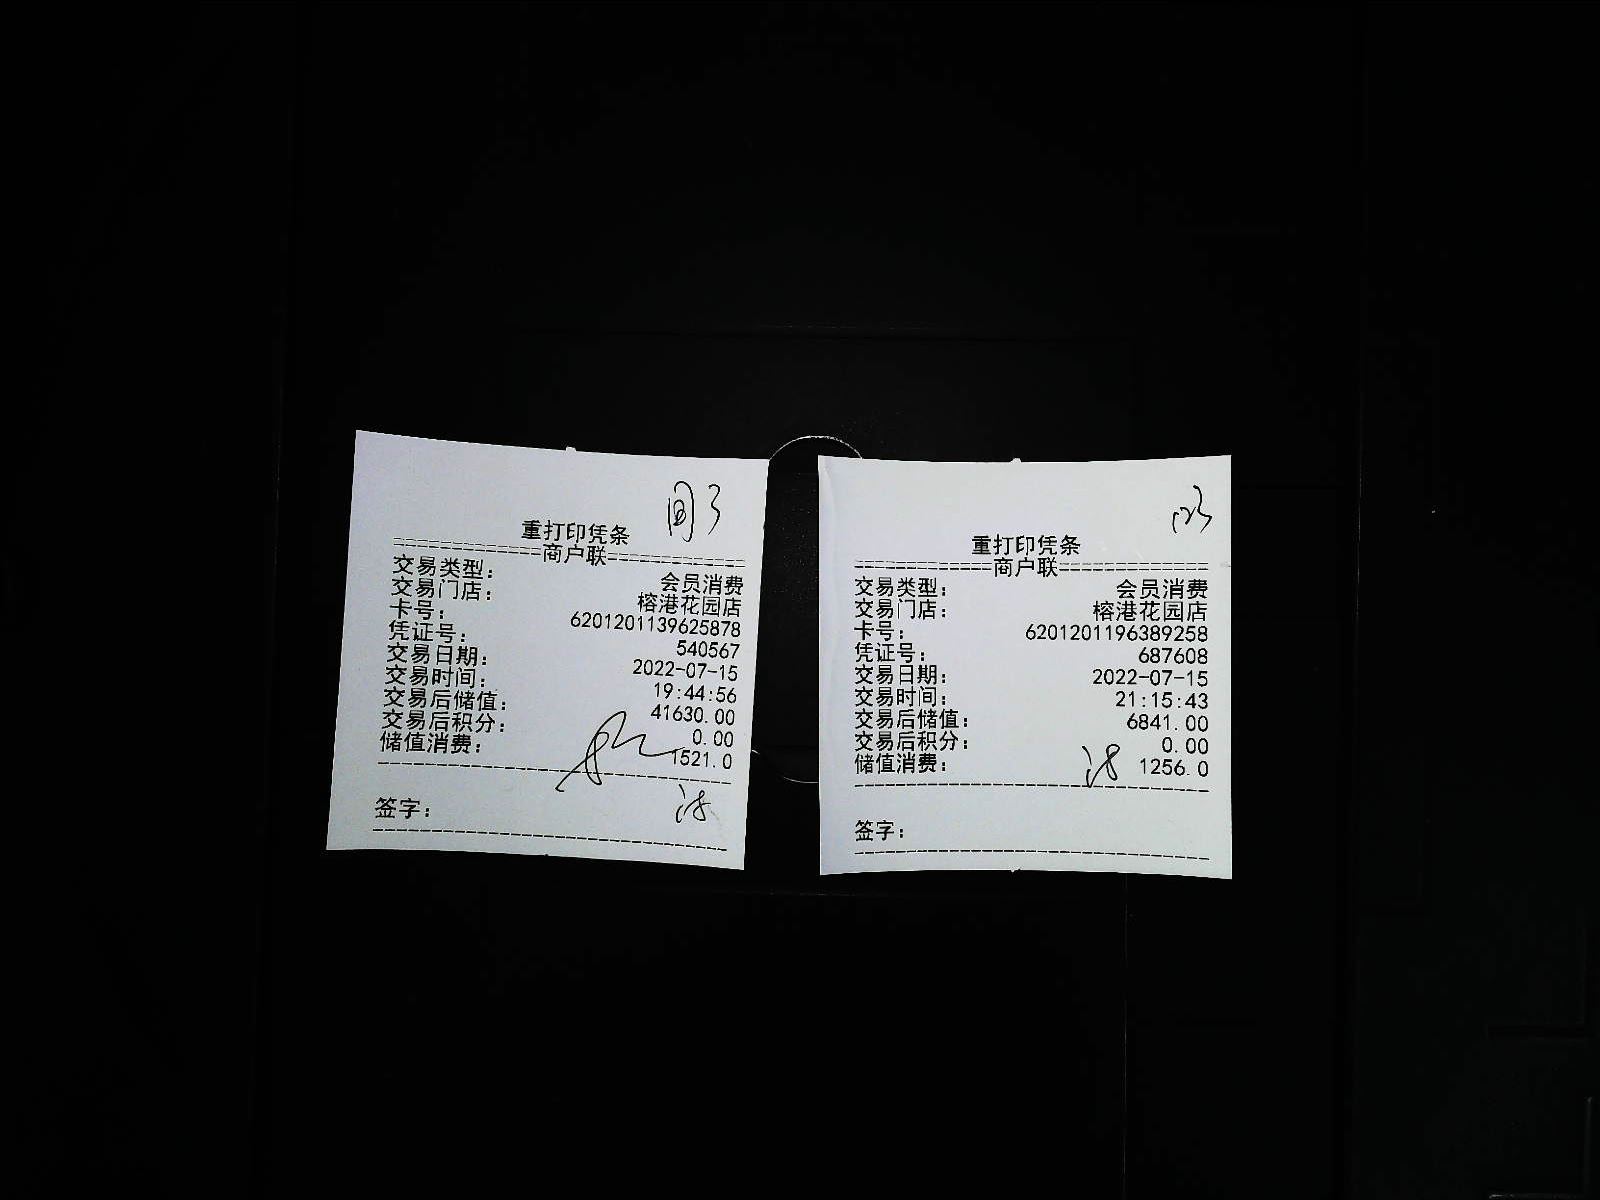 重打印凭条
==============商户联==============
交易类型: 会员消费
交易门店: 榕港花园店
卡号: 6201201139625878
凭证号: 540567
交易日期: 2022-07-15
交易时间: 19:44:56
交易后储值: 41630.00
交易后积分: 0.00
储值消费: 1521.0
签字:
重打印凭条
==============商户联==============
交易类型: 会员消费
交易门店: 榕港花园店
卡号: 6201201196389258
凭证号: 687608
交易日期: 2022-07-15
交易时间: 21:15:43
交易后储值: 6841.00
交易后积分: 0.00
储值消费: 1256.0
签字: